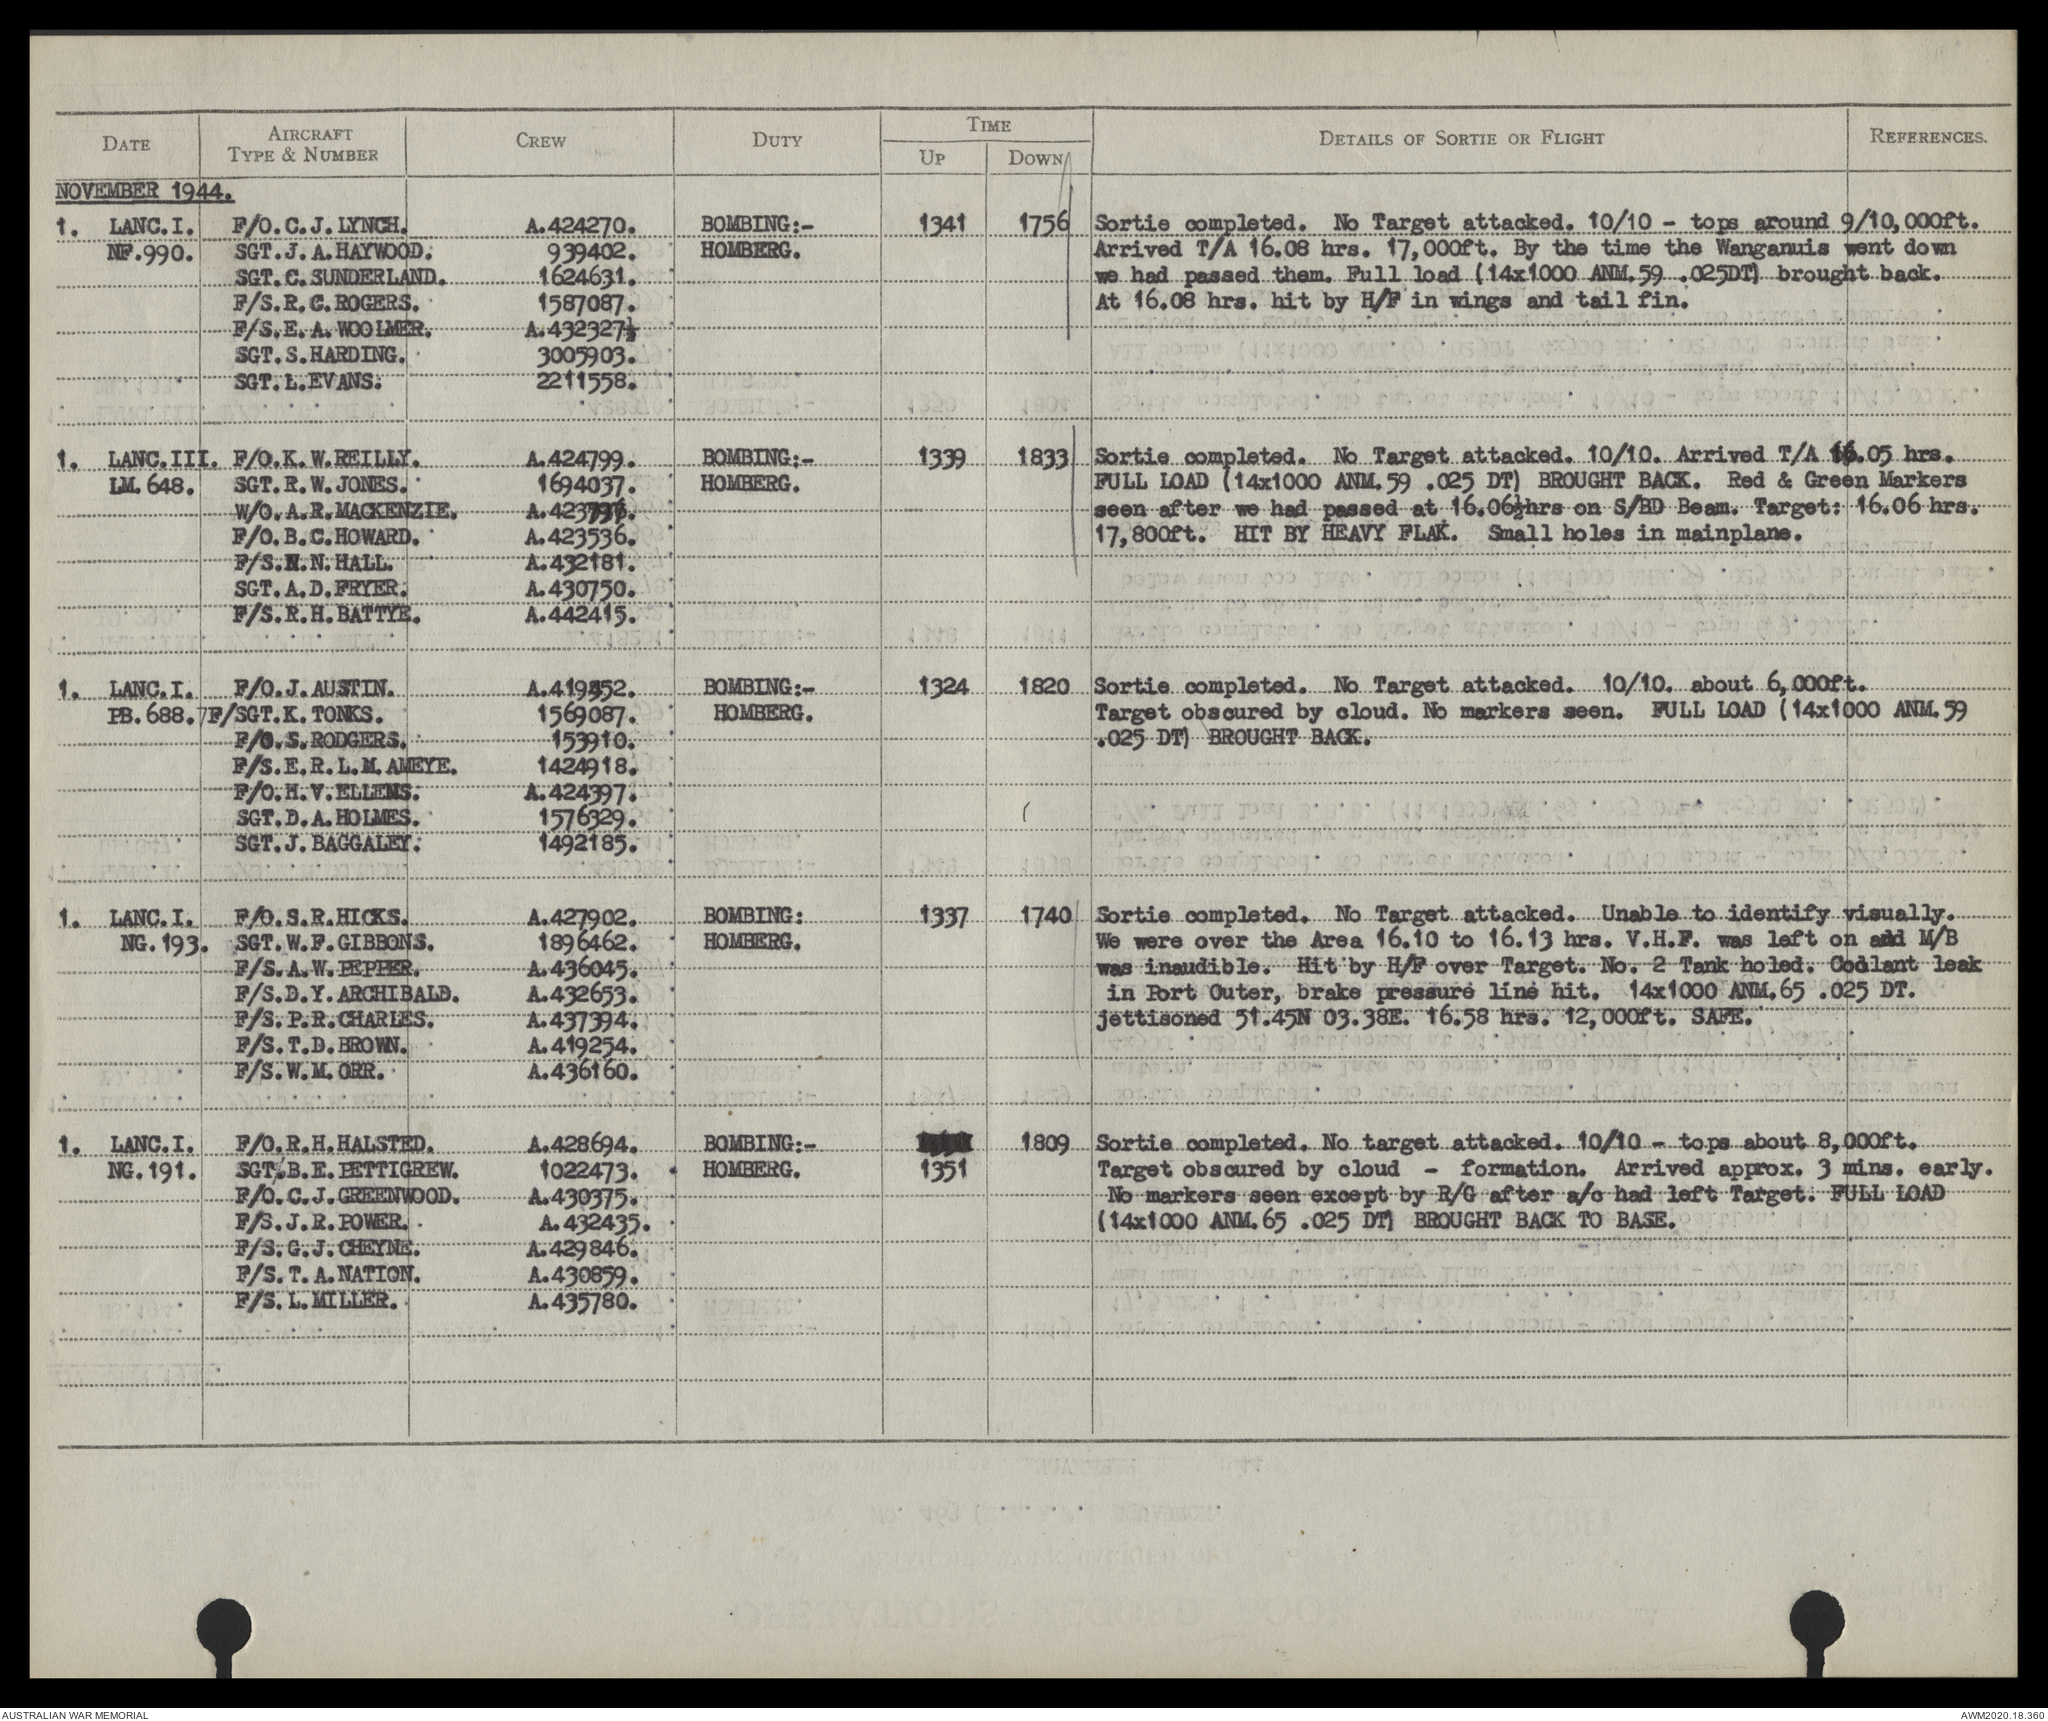 DATE AIRCRAFT TYPE & NUMBER CREW DUTY TIME UP DOWN DETAILS OF SORTIE OR FLIGHT REFERENCES.
NOVEMBER 1944.
1. LANC.I. F/O.C.J.LYNCH. A.424270. BOMBING:- 1341 1756 Sortie completed. No Target attacked. 10/10 - tops around 9/10,000ft.
NF.990. SGT.J.A.HAYWOOD. 939402. HOMBERG. Arrived T/A 16.08 hrs. 17,000ft. By the time the Wanganuis went down
SGT.C.SUNDERLAND. 1624631. we had passed them. Full load (14x1000 ANM.59 .025DT) brought back.
F/S.R.C.ROGERS. 1587087. At 16.08 hrs. hit by H/F in wings and tail fin.
F/S.E.A.WOOLMER. A.432327
SGT.S.HARDING. 3005903.
SGT.L.EVANS. 2211558.
1. LANC.III. F/O.K.W.REILLY. A.424799. BOMBING:- 1339 1833 Sortie completed. No Target attacked. 10/10. Arrived T/A 16.05 hrs.
LM.648. SGT.R.W.JONES. 1694037. HOMBERG. FULL LOAD (14x1000 ANM.59 .025 DT) BROUGHT BACK. Red & Green Markers
W/O.A.R.MACKENZIE. seen after we had passed at 16.06½hrs on S/BD Beam. Target: 16.06 hrs.
F/O.B.C.HOWARD. A.423536. 17,800ft. HIT BY HEAVY FLAK. Small holes in mainplane.
F/S.N.N.HALL. A.432181.
SGT.A.D.FRYER. A.430750.
F/S.R.H.BATTYE. A.442415.
1. LANC.I. F/O.J.AUSTIN. BOMBING:- 1324 1820 Sortie completed. No Target attacked. 10/10. about 6,000ft.
PB.688. F/SGT.K.TONKS. 1569087. HOMBERG. Target obscured by cloud. No markers seen. FULL LOAD (14x1000 ANM.59
F/O.S.RODGERS. 153910. .025 DT) BROUGHT BACK.
F/S.E.R.L.M.AMEYE. 1424918.
F/O.H.V.ELLENS. A.424397.
SGT.D.A.HOLMES. 1576329.
SGT.J.BAGGALEY. 1492185.
1. LANC.I. F/O.S.R.HICKS. A.427902. BOMBING: 1337 1740 Sortie completed. No Target attacked. Unable to identify visually.
NG.193. SGT.W.F.GIBBONS. 1896462. HOMBERG. We were over the Area 16.10 to 16.13 hrs. V.H.F. was left on and M/B
F/S.A.W.PEPPER. A.436045. was inaudible. Hit by H/F over Target. No. 2 Tank holed. Coolant leak
F/S.D.Y.ARCHIBALD. A.432653. in Port Outer, brake pressure line hit. 14x1000 ANM.65 .025 DT.
F/S.P.R.CHARLES. A.437394. jettisoned 51.45N 03.38E. 16.58 hrs. 12,000ft. SAFE.
F/S.T.D.BROWN. A.419254.
F/S.W.M.ORR. A.436160.
1. LANC.I. F/O.R.H.HALSTED. A.428694. BOMBING:- 1809 Sortie completed. No target attacked. 10/10 - tops about 8,000ft.
NG.191. SGT.B.E.PETTIGREW. 1022473. HOMBERG. 1351 Target obscured by cloud - formation. Arrived approx. 3 mins. early.
F/O.C.J.GREENWOOD. A.430375. No markers seen except by R/G after a/c had left Target. FULL LOAD
F/S.J.R.POWER. A.432435. (14x1000 ANM.65 .025 DT) BROUGHT BACK TO BASE.
F/S.G.J.CHEYNE. A.429846.
F/S.T.A.NATION. A.430859.
F/S.L.MILLER. A.435780.
AUSTRALIAN WAR MEMORIAL AWM2020.18.360